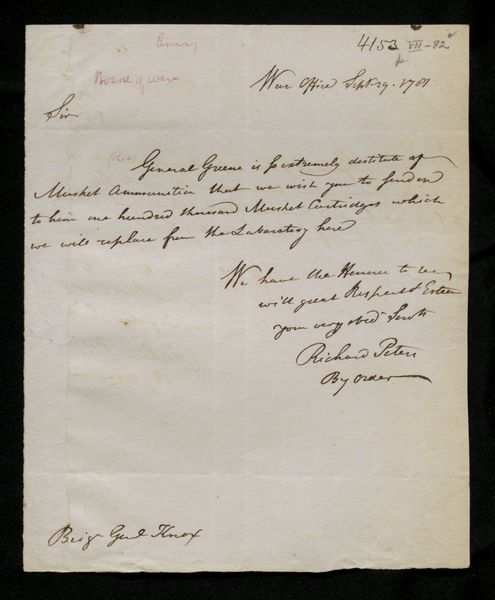 Army
4153 VII-82
Board of War
War Office Sept 29. 1781
Sir
General Greene is so extremely destitute of
Musket Ammunition that we wish you to send on
to him one hundred thousand Musket Cartridges which
we will replace from the Laboratory here
We have the Honour to be
with great Respect & Esteem
your very obed Servts
Richard Peters
By order
Brigr Genl Knox